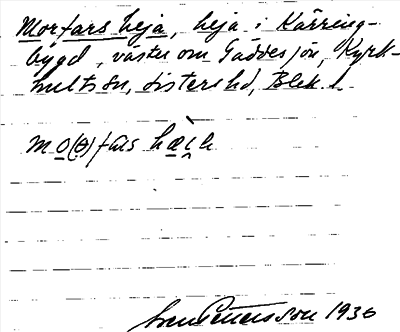 Morfars heja, heja i Kärring-
bygd, väster om Gäddesjön, Kyrk-
hults sn, Listers hd, Blek. l.
mo(ə)fas
Sven Petersson 1936